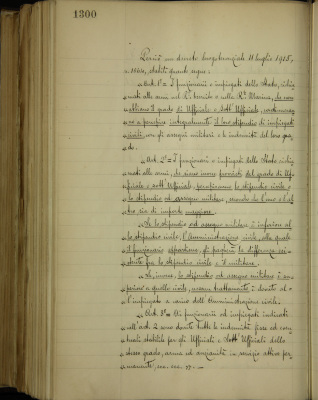 1300
Perciò un decreto luogotenenziale 11 luglio 1915,
n. 1064, stabilì quanto segue:
"Art. 1° = I funzionari e impiegati dello Stato, richia-
"mati alle armi nel R.° Esercito e nella R.ª Marina, che non
"abbiano il grado di Ufficiale o Sott'Ufficiale, continueran-
"no a percepire integralmente il loro stipendio di impiegati
"civili, con gli assegni militari e le indennità del loro gra-
"do.
"Art. 2° = I funzionari e impiegati dello Stato, richia-
"mati alle armi, che siano invece provvisti del grado di Uf-
"ficiale o sott'Ufficiale, percepiranno lo stipendio civile o
"lo stipendio ed assegno militare, secondo che l'uno o l'al-
"tro sia di importo maggiore.
"Se lo stipendio ed assegno militare è inferiore al-
"lo stipendio civile, l'Amministrazione civile, alla quale
"il funzionario appartiene, gli pagherà la differenza esi-
"stente fra lo stipendio civile e il militare.
"Se, invece, lo stipendio ed assegno militare è su-
"periore a quello civile, nessun trattamento è dovuto al-
"l'impiegato a carico dell'Amministrazione civile.
"Art. 3° = Ai funzionari ed impiegati indicati
"nell'art. 2 sono dovute tutte le indennità fisse ed even-
"tuali stabilite per gli Ufficiali e Sott'Ufficiali dello
"stesso grado, arma ed anzianità in servizio attivo per-
"manente, ecc. ecc. ". —